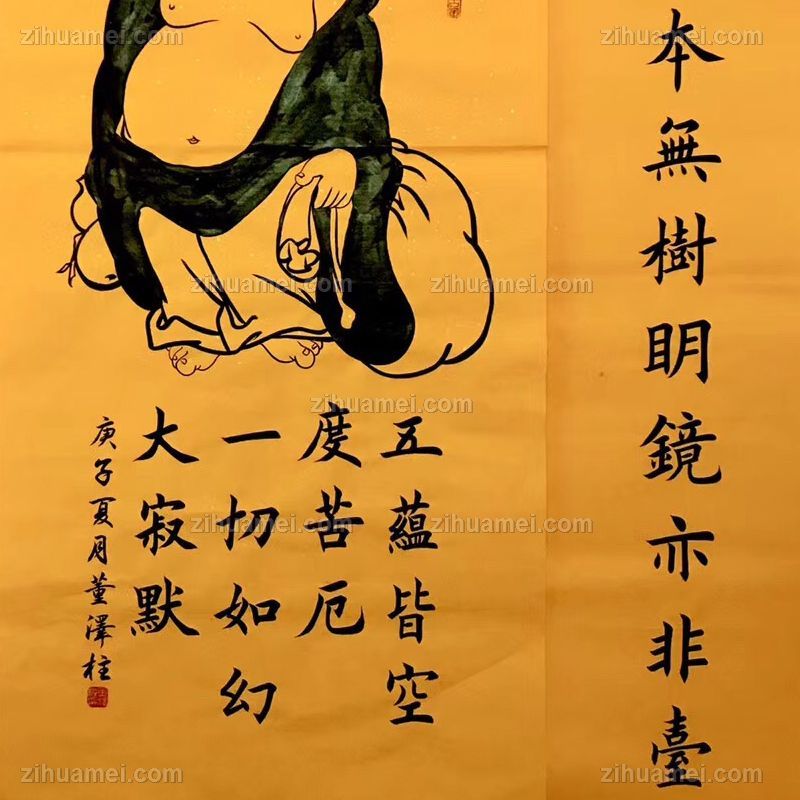 本無樹明鏡亦非臺
五蘊皆空
度苦厄
一切如幻
大寂默
庚子夏月董澤柱
zihuamei.com
zihuamei.com
zihuamei.com
zihuamei.com
zihuamei.com
zihuamei.com
zihuamei.com
zihuamei.com
zihuamei.com
zihuamei.com
zihuamei.com